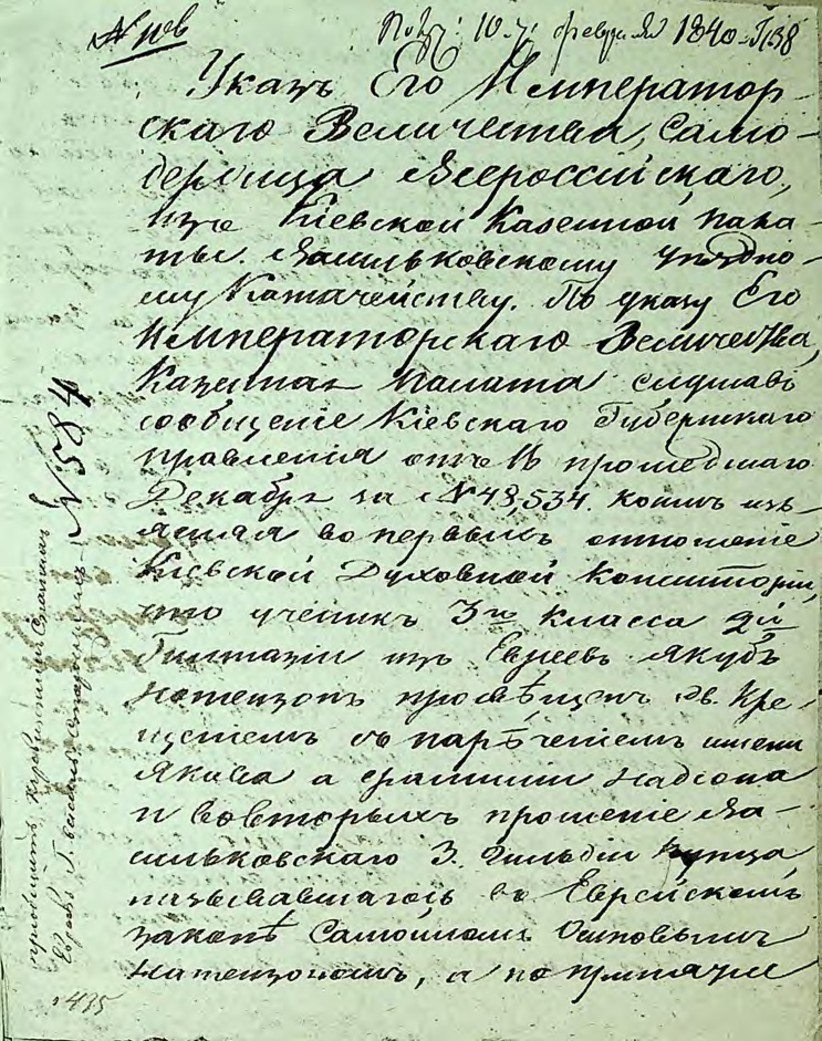 Указъ Его Император-
скаго Величества, Само-
держца Всероссійскаго,
изъ Кіевской Казенной пала-
ты. Васильковскому уѣздно-
му Казначейству. По указу Его
Императорскаго Величества,
Казенная Палата слушавъ
сообщеніе Кіевскаго Губернскаго
правленія отъ 16 прошедшаго
Декабря за №48,534. коимъ изъ-
ясняя во первыхъ отношеніе
Кіевской Духовной Консисторіи,
что ученикъ 3го класса 2й
Гимназіи изъ Евреевъ Якубъ
Натензонъ просвѣщенъ св. Кре-
щеніемъ съ нарѣченіемъ имени
Якова а фамиліи Надсона
и вовторыхъ прошеніе Ва-
сильковскаго 3. Гильдіи купца
называвшагось въ Еврейскомъ
законѣ Самойломъ Осиповымъ
Натензономъ, а по принятіи
10го февраля 1840
№584
1435